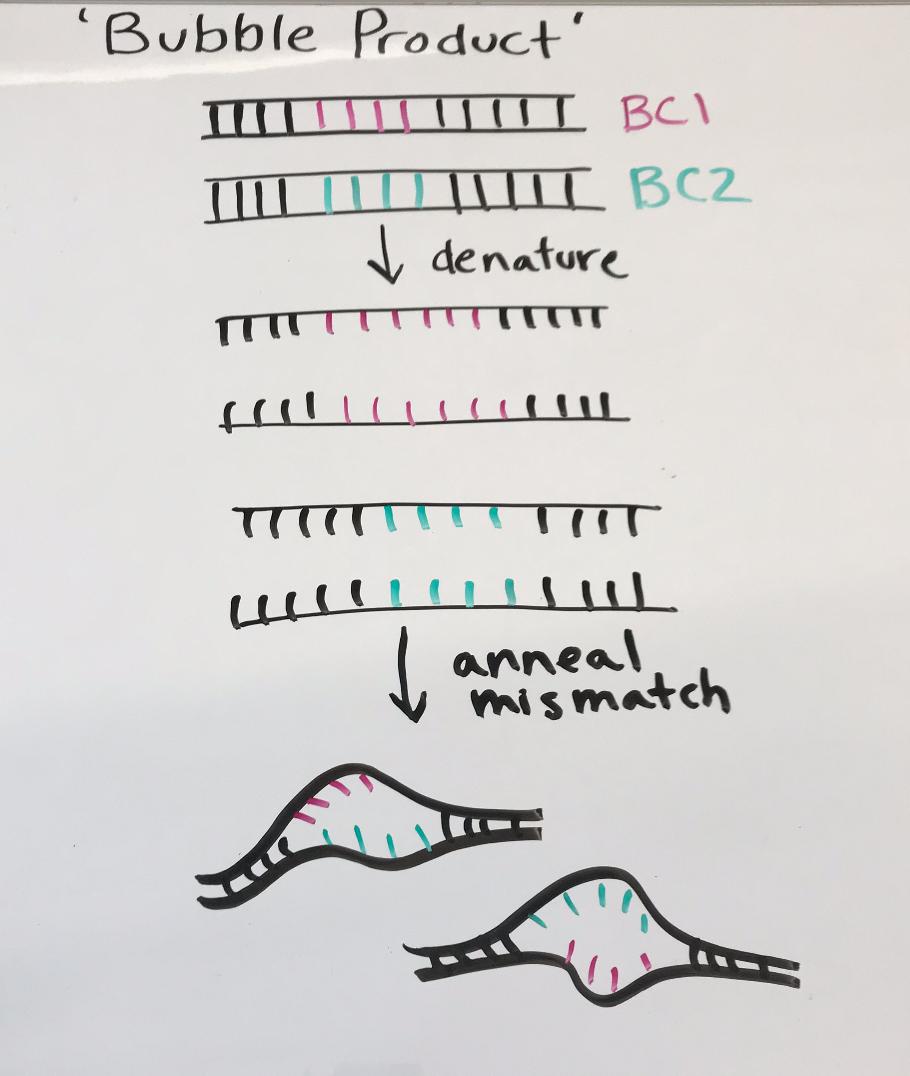 'Bubble Product'
BC1
BC2
denature
anneal
mismatch